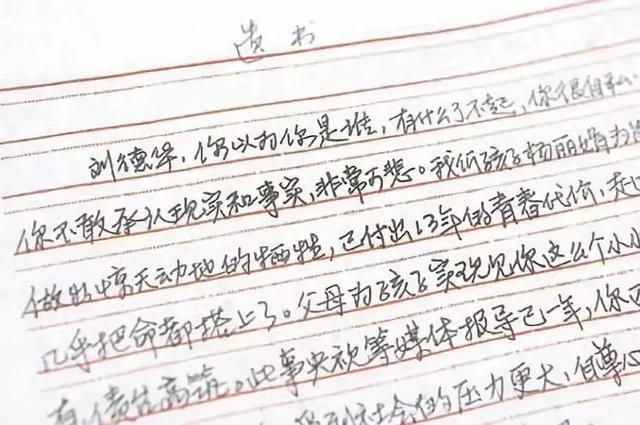 遗书
刘德华,你以为你是谁,有什么了不起,你很自私
你不敢承认现实和事实,非常可悲。我们孩子杨丽娟为
做出惊天动地的牺牲,已付出13年的青春代价,
几乎把命都搭上了。父母为孩子实现见你这么个小小
债台高筑。此事央视等媒体报导已一年,你
社会的压力更大,自尊心